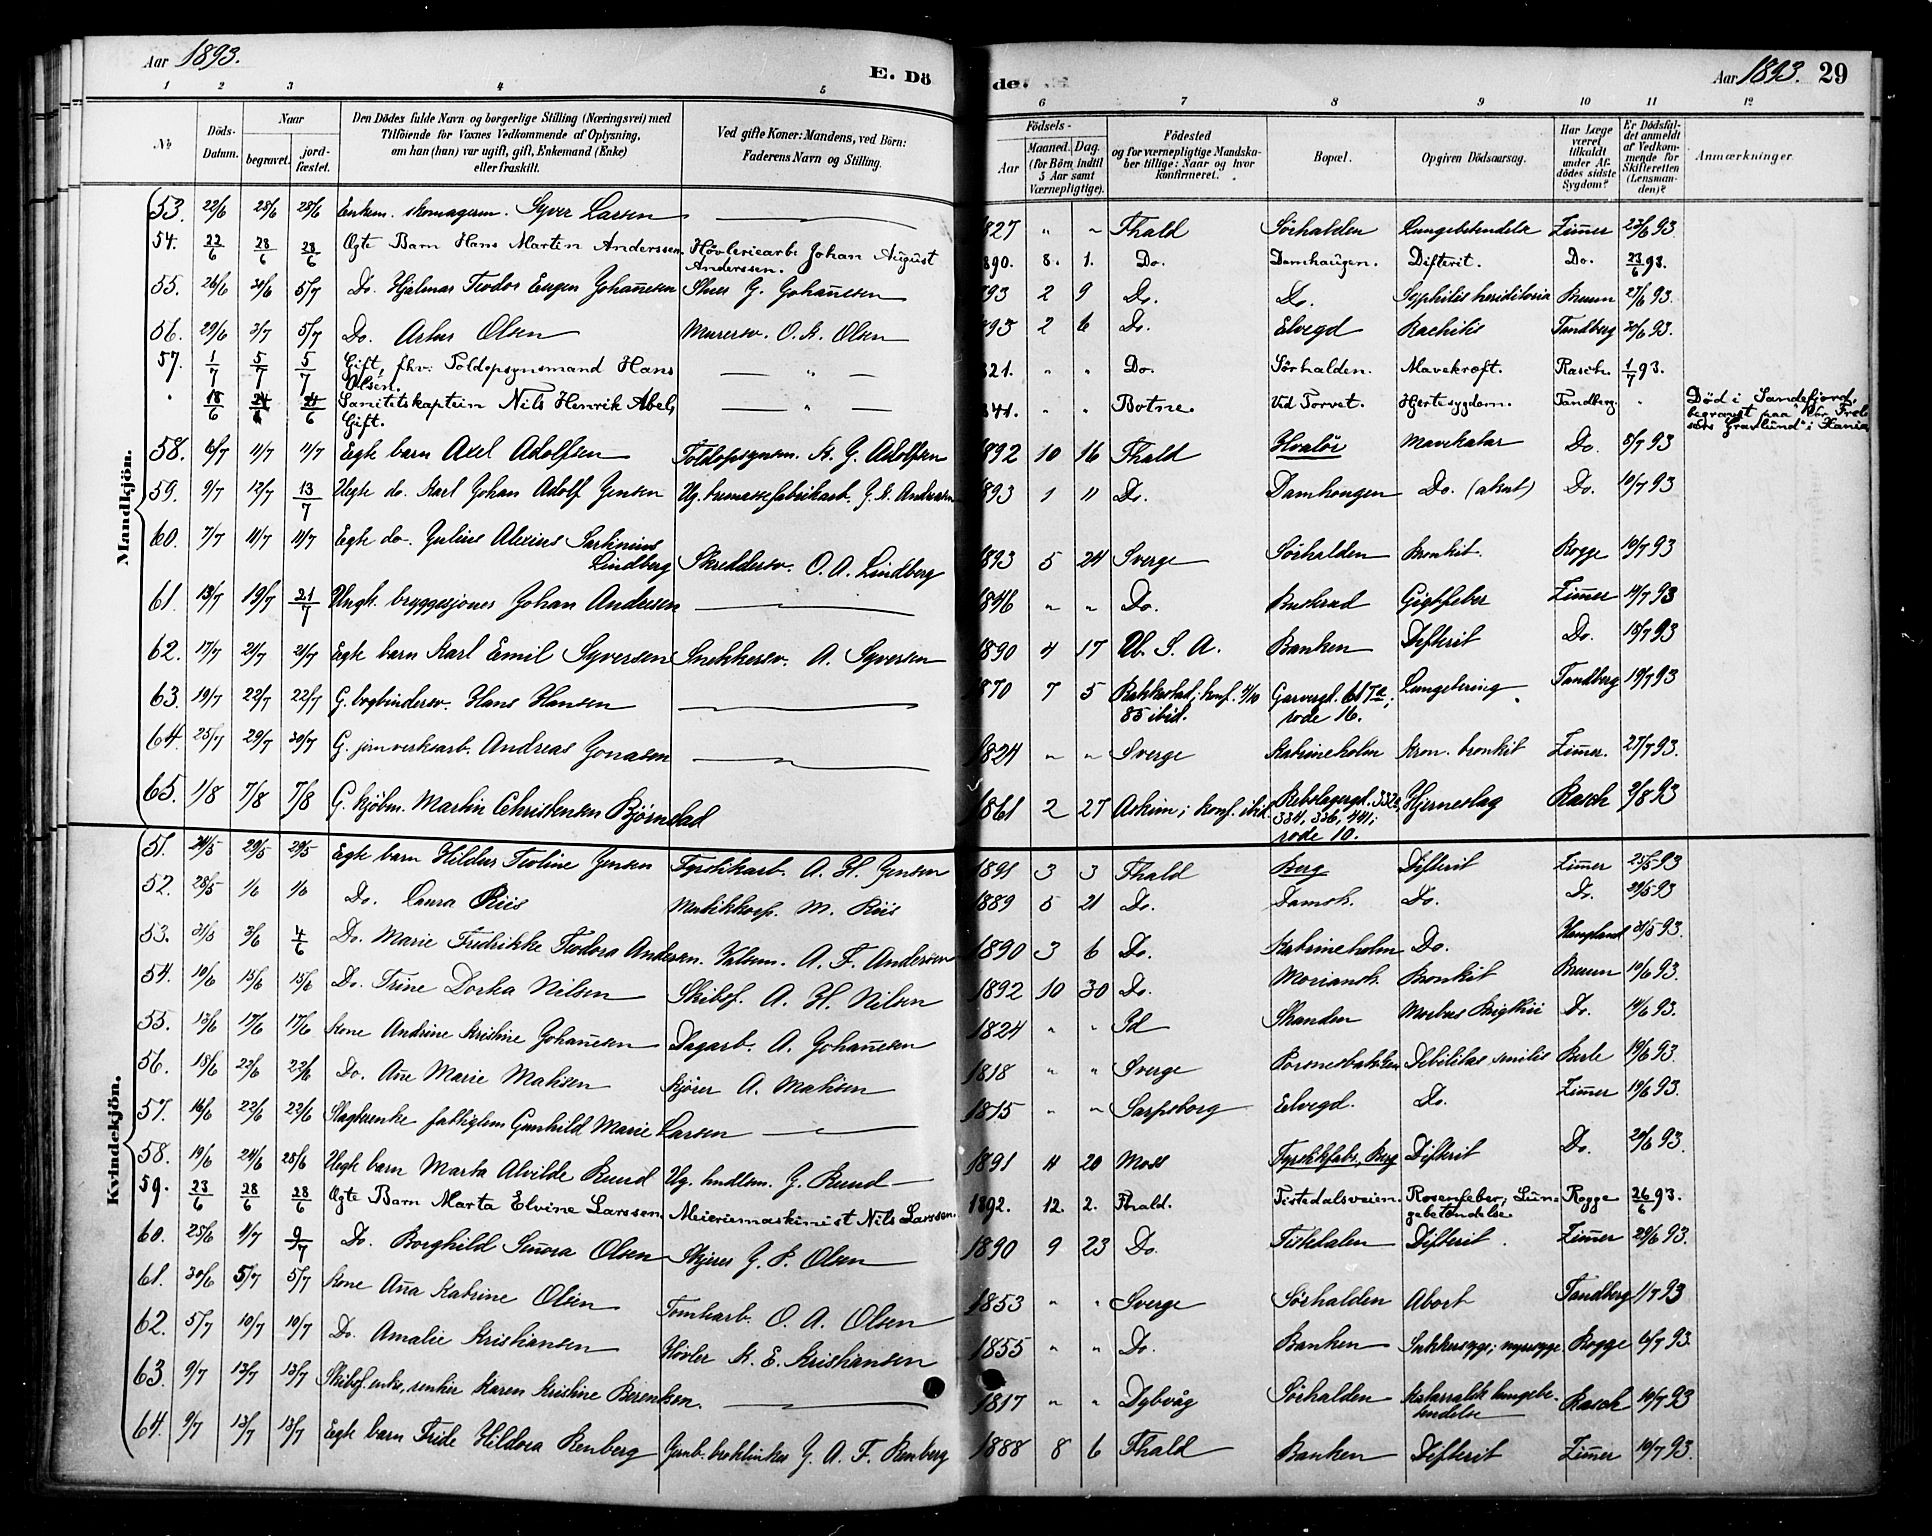 Aar 1893.
E. Dö
de
Aar 1893. 29
1 2 3 4 5 6 7 8 9 10 11 12
№
Döds-
Datum.
Naar
begravet.
jord-
fæstet.
Den Dödes fulde Navn og borgerlige Stilling (Næringsvei) med
Tilföiende for Voxnes Vedkommende af Oplysning,
om han (hun) var ugift, gift, Enkemand (Enke)
eller fraskilt.
Ved gifte Koner: Mandens, ved Börn:
Faderens Navn og Stilling.
Födsels-
Aar
Maaned. Dag.
(for Börn indtil
5 Aar samt
Værnepligtige).
Födested
og for værnepligtige Mandska-
ber tillige: Naar og hvor
konfirmeret.
Bopæl.
Opgiven Dödsaarsag.
Har Læge
været
tilkaldt
under Af-
dödes sidste
Sygdom?
Er Dödsfal-
det anmeldt
af Vedkom-
mende for
Skifteretten
(Lensman-
den)?
Anmærkninger.
Mandkjön.
53. 22/6 28/6 28/6 Enkem. skomagerm. Syver Larsen 1827 " " Fhald Sörhalden Lungebetendelse Zimer 23/6 93
54. 22/6 28/6 28/6 Ægte Barn Hans Martin Anderssen Hövleriearb. Johan August
Anderssen. 890. 8. 1. Do. Damhaugen. Difterit. Do. 23/6 93.
55. 26/6 30/6 5/7 Do. Hjalmar Teodor Eugen Johañesen Skues G. Johañesen 893 2 9 Do. Do. Syphilis hereditaria Bruun 27/6 93.
56. 29/6 3/7 5/7 Do. Artur Olsen Murersv. O. K. Olsen 893 2 6 Do. Elvegd Rachitis Tandberg 30/6 93.
57. 1/7 5/7 5/7 Gift, fhv. Toldopsynsmand Hans
Olsen. 821. " " Do. Sörhalden. Mavekræft. Rasch. 1/7 93.
" 18/6 24/6 24/6 Sanitetskaptein Nils Henrik Abel,
Gift. 841. " " Botne. Ved Torvet. Hjertesygdom. Tandberg. " Död i Sandefjord,
begravet paa "Vor Frel-
sers Gravlund" i Kania
58. 6/7 11/7 11/7 Egte barn Axel Adolfsen Toldopsynsm. K. G. Adolfsen 1892 10 16 Fhald Hvalör Mavekatar Do. 8/7 93
59. 9/7 12/7 13/7 Uegte do. Karl Johan Adolf Jensen Ug. træmassefabrikarb. J. E. Andersen 893 1 11 Do. Damhougen Do. (akut) Do. 10/7 93
60. 7/7 11/7 11/7 Egte do. Julius Alexius Sartinius
Lindberg Skreddersv. O. A. Lindberg 1893 5 24 Sverge Sörhalden Bronkit. Rogge 10/7 93
61. 13/7 19/7 21/7 Ungk. bryggesjouer Johan Andresen 1846 " " Do. Buskrud Gigtfeber Zimer 14/7 93
62. 17/7 21/7 21/7 Egte barn Karl Emil Syversen Snekkersv. A. Syversen 1890 4 17 U. S. A. Banken Difterit Do. 18/7 93
63. 19/7 22/7 22/7 G. bogbindersv. Hans Hansen 1870 7 5 Rakkestad; konf. 4/10
85 ibid. Garvergd. 617a;
rode 16. Lungetæring Tandberg 19/7 93
64. 25/7 29/7 30/7 G. jernverksarb. Andreas Jonasen 1824 " " Sverge Katrineholm Kron. bronkit Zimer. 27/7 93.
65. 1/8 7/8 7/8 G. kjöbm. Martin Christensen Björnstad 1861 2 27 Askim; konf. ibid. Rebslagergd. 332a,
334, 336, 441;
rode 10. Hjerneslag Rasch 2/8 93
Kvindekjön.
51. 24/5 29/5 29/5 Egte barn Hildur Teoline Jensen Fyrstikarb. A. H. Jensen 1891 3 3 Fhald Berg Difterit Zimer 25/5 93
52. 28/5 1/6 1/6 Do. Laura Riis Musikkorp. M. Riis 1889 5 21 Do. Damsk. Do. Do. 30/5 93
53. 31/5 3/6 4/6 Do. Marie Fredrikke Teodora Andersen. Valsem. A. F. Andersen 1890 3 6 Do. Katrineholm Do. Haugland 31/5 93.
54. 10/6 15/6 15/6 Do. Trine Dorthea Nilsen Skibsf. A. H. Nilsen 1892 10 30 Do. Moriansk. Bronkit Bruun 10/6 93.
55. 13/6 17/6 17/6 Kone Andrine Kristine Johañesen Dagarb. A. Johañesen 1824 " " Id Skanden Morbus Brigthii Do. 14/6 93.
56. 18/6 22/6 22/6 Do. Añe Marie Matisen Kjörer A. Matisen 1818 " " Sverge Porsnesbakken Debilitas senilis Berle 19/6 93.
57. 16/6 22/6 22/6 Slagterenke fattiglem Gunhild Marie Larsen 1815 " " Sarpsborg Elvegd. Do. Zimer 19/6 93.
58. 19/6 24/6 25/6 Uegte barn Marta Alvilde Ruud Ug. hndlsm. G. Ruud 1891 11 20 Moss Fyrstikfabr., Berg Difterit Do. 20/6 93.
59. 23/6 28/6 28/6 Ægte Barn Marta Elvine Larssen Meieriemaskinist Nils Larssen. 1892. 12. 2. Fhald. Tistedalsveien. Rosenfeber; Lun-
gebetændelse. Rogge 26/6 93.
60. 25/6 4/7 9/7 Do. Borghild Señora Olsen Skjuer G. P. Olsen 1890 9 23 Do. Tistedalen Difterit Zimer 29/6 93.
61. 30/6 5/7 5/7 Kone Aña Katrine Olsen Tomtearb. O. A. Olsen 1853 " " Sverge Sörhalden Abort Tandberg 1/7 93
62. 5/7 10/7 10/7 Do. Amalie Kristiansen Hövler K. E. Kristiansen 1855 " " Do. Banken Sukkersyge; nyresyge Rogge 6/7 93.
63. 9/7 13/7 13/7 Skibsf.enke, rentier Karen Kristine Berentsen. 1817 " " Dybvåg Sörhalden Katarralsk lungebe-
tendelse Rasch 10/7 93
64. 9/7 13/7 13/7 Egte barn Fride Hildora Renberg Jernb. G. A. F. Renberg 1888 8 6 Fhald Banken Difterit Zimer 10/7 93